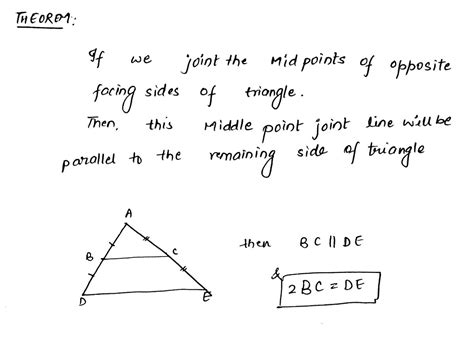 THEOREM:
If we joint the Mid points of opposite
facing sides of triangle.
Then, this Middle point joint line will be
parallel to the remaining side of triangle
A
B C then BC || DE
&
D E 2BC = DE